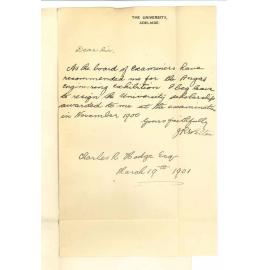 THE UNIVERSITY,
ADELAIDE.
Dear Sir,
As the board of Examiners have
recommended me for the Angas
Engineering Exhibition I beg leave
to resign the University scholarship
awarded to me at the examination
in November 1900
Yours faithfully
Charles R. Hodge Esq
March 19th 1901